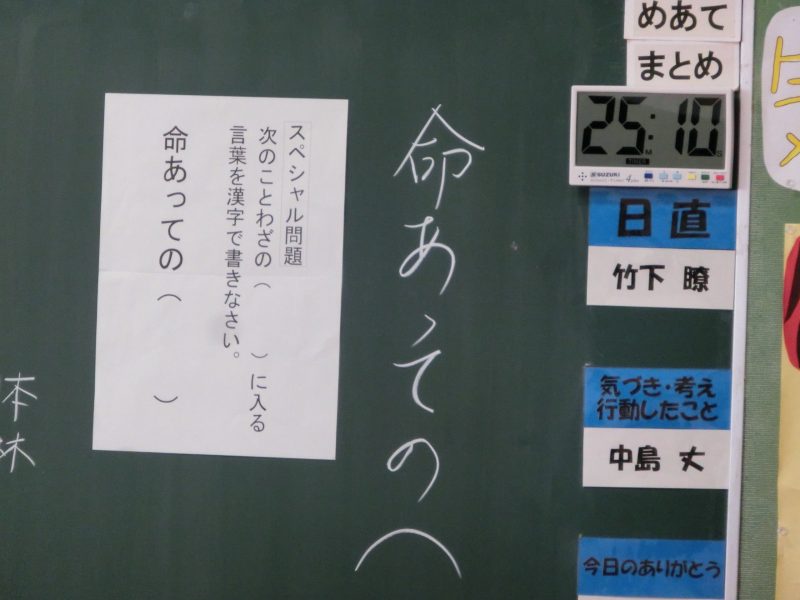 スペシャル問題
次のことわざの（　　）に入る
言葉を漢字で書きなさい。
命あっての（　　　）
命あっての（
本
林
めあて
まとめ
25:10
SUZUKI
日直
竹下 瞭
気づき・考え
行動したこと
中島 丈
今日のありがとう